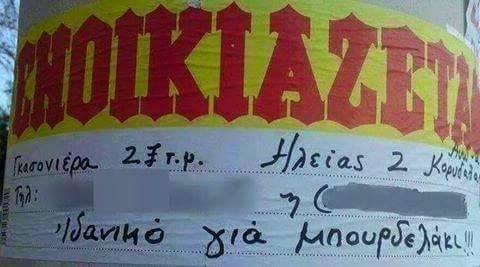 ΕΝΟΙΚΙΑΖΕΤΑΙ
Γκασονιέρα 27 τ.μ. Ηλείας 2 Κορυδαλ
Τηλ: η (
Ιδανικό γιά μπουρδελάκι!!!